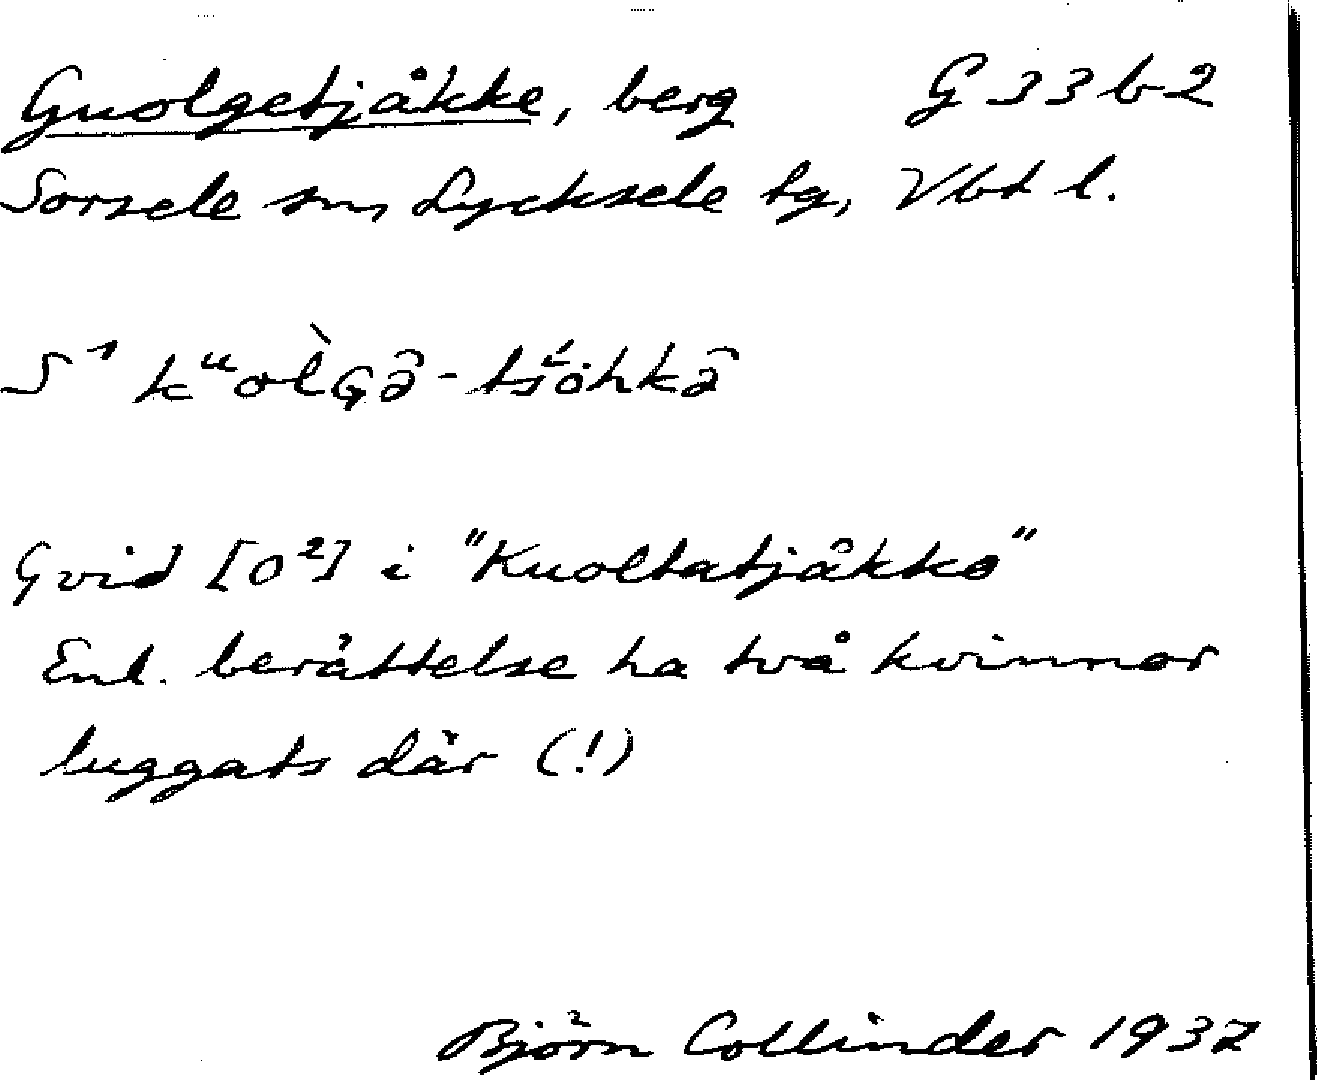 Guolgetjåkke, berg G 33 b 2
Sorsele sn, Lycksele tg, Vbt l.
S¹ kᵘol̀Gâ-tśȯhkâ
Gvid [O²] i "Kuoltatjåkko"
Enl. berättelse ha två kvinnor
luggats där (!)
Björn Collinder 1937